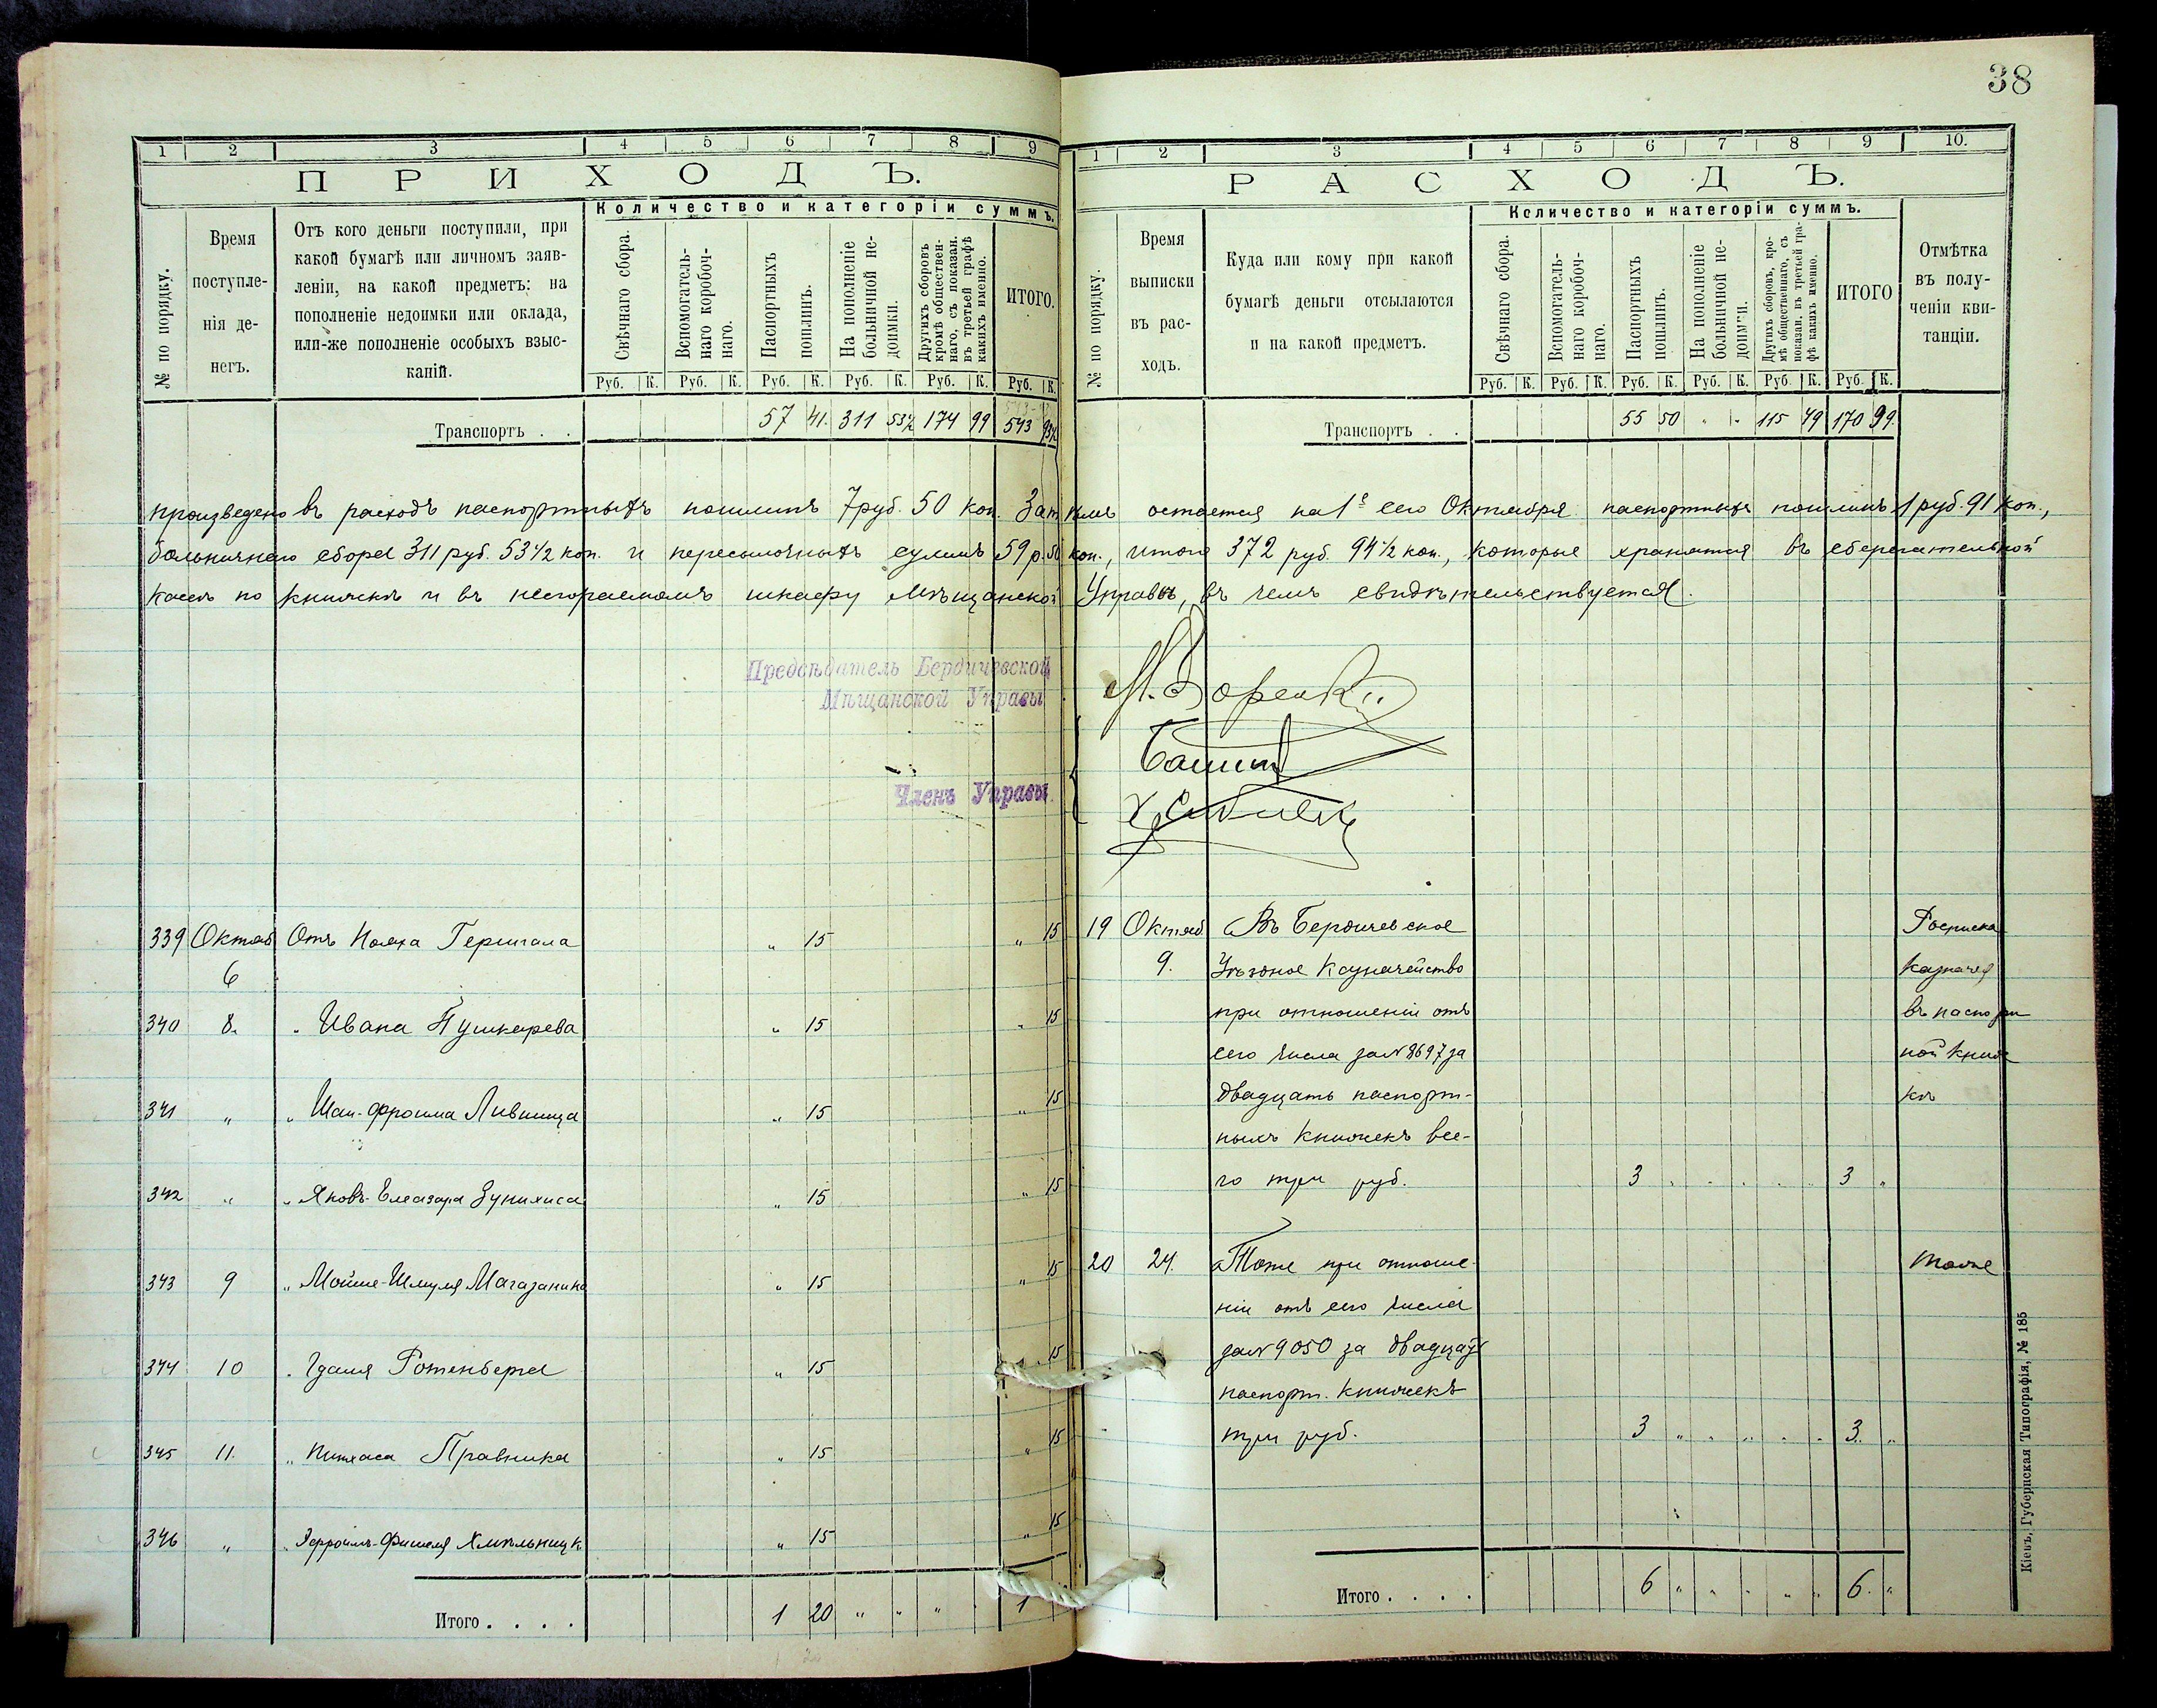 38
1 2 3 4 5 6 7 8 9
ПРИХОДЪ.
№ по порядку.
Время поступле-
нія де-
негъ.
Отъ кого деньги поступили, при
какой бумагѣ или личномъ заяв-
леніи, на какой предметъ: на
пополненіе недоимки или оклада,
или-же пополненіе особыхъ взыс-
каній.
Количество и категоріи суммъ.
Свѣчнаго сбора.
Вспомогатель-
наго коробоч-
наго.
Паспортныхъ
пошлинъ.
На пополненіе
больничной не-
доимки.
Другихъ сборовъ
кромѣ обществен-
наго, съ показан.
въ третьей графѣ
какихъ именно.
ИТОГО.
Руб. К. Руб. К. Руб. К. Руб. К. Руб. К. Руб. К.
Транспортъ . . 57 41. 311 53½ 174 99 543 93½
1 2 3 4 5 6 7 8 9 10.
РАСХОДЪ.
№ по порядку.
Время
выписки
въ рас-
ходъ.
Куда или кому при какой
бумагѣ деньги отсылаются
и на какой предметъ.
Количество и категоріи суммъ.
Свѣчнаго сбора.
Вспомогатель-
наго коробоч-
наго.
Паспортныхъ
пошлинъ.
На пополненіе
больничной не-
доимки.
Другихъ сборовъ, кро-
мѣ общественнаго, съ
показан. въ третьей гра-
фѣ какихъ именно.
ИТОГО
Отмѣтка
въ полу-
ченіи кви-
танціи.
Руб. К. Руб. К. Руб. К. Руб. К. Руб. К. Руб. К.
Транспортъ . . 55 50 " " 115 49 170 99.
произведено въ расходъ паспортныхъ пошлинъ 7 руб. 50 коп. Затѣмъ остается на 1е сего Октября паспортныхъ пошлинъ 1 руб. 91 коп.,
больничнаго сбора 311 руб. 53½ коп. и пересылочныхъ суммъ 59 р. 50 коп., итого 372 руб. 94½ коп., которые хранятся въ сберегательной
кассѣ по книжкѣ и въ несгораемомъ шкафу Мѣщанской Управы, въ чемъ свидѣтельствуется.
Предсѣдатель Бердичевской
Мѣщанской Управы
Членъ Управы
339 Октяб Отъ " 15 " 15
6
340 8. " Ивана Пушкарева " 15 " 15
341 " " Шаи-Фроима Лившица " 15 " 15
342 " " Яковъ-Елеазара " 15 " 15
343 9 " Мойше-Шмуля Магазаника " 15 " 15
344 10 " Гдаля Ротенберга " 15 " 15
345 11. " Пинхаса Правника " 15 " 15
346 " " " 15 " 15
Итого . . . . 1 20 " " " 1
19 Октяб Въ Бердичевское Росписка
9. Уѣздное Казначейство Казначея
при отношеніи отъ въ паспорт
сего числа за № 8697 за ной книж
двадцать паспорт- кѣ
ныхъ книжекъ все-
го три руб. 3 " " " " " 3 "
20 24. Тоже при отноше- тоже
ніи отъ сего числа
за № 9050 за двадцать
паспорт. книжекъ
три руб. 3 " " " " " 3. "
Итого . . . . 6 " " " " " 6. "
Кіевъ, Губернская Типографія, № 185